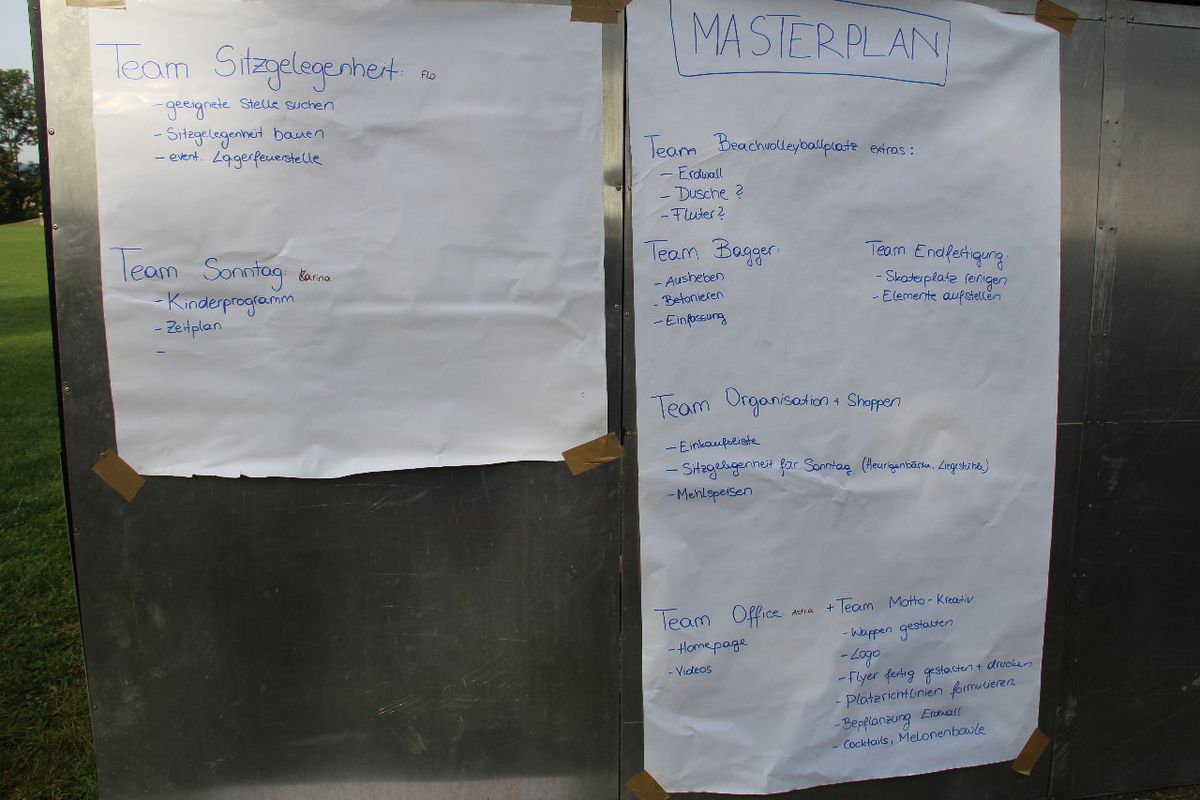 Team Sitzgelegenheit: Flo
- geeignete Stelle suchen
- Sitzgelegenheit bauen
- event. Lagerfeuerstelle
Team Sonntag: Karina
- Kinderprogramm
- Zeitplan
-
MASTERPLAN
Team Beachvolleyballplatz extras:
- Erdwall
- Dusche?
- Fluter?
Team Bagger:
- Ausheben
- Betonieren
- Einfassung
Team Endfertigung:
- Skaterplatz reinigen
- Elemente aufstellen
Team Organisation + Shoppen
- Einkaufsliste
- Sitzgelegenheit für Sonntag (Heurigenbänke, Liegestühle)
- Mehlspeisen
Team Office
- Homepage
- Videos
+ Team Motto-Kreativ
- Wappen gestalten
- Logo
- Flyer fertig gestalten + drucken
- Platzrichtlinien formulieren
- Bepflanzung Erdwall
- Cocktails, Melonenbowle